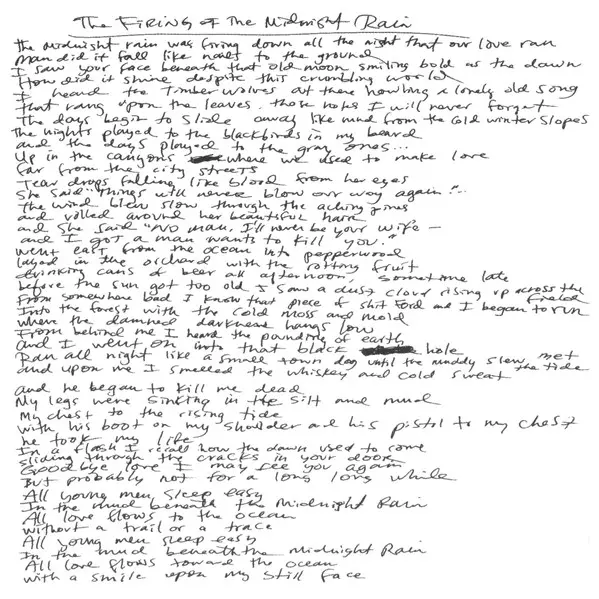 The Firing of The Midnight Rain
The midnight rain was firing down all the night that our love ran
Man did it fall like nails to the ground
I saw your face beneath that old moon smiling bold as the dawn
How did it shine despite this crumbling world
I heard the timberwolves out there howling a lonely old song
That rang upon the leaves. those notes I will never forget
The days begin to slide away like mud from the cold winter slopes
The nights played to the blackbirds in my beard
and the days played to the gray ones...
Up in the canyons where we used to make love
far from the city streets
Tear drops falling like blood from her eyes
She said "Things will never blow our way again."
The wind blew slow through the aching pines
and rolled around her beautiful hair
and she said "No man, I'll never be your wife —
and I got a man wants to kill you."
Went east from the ocean into pepperwood
layed in the orchard with the rotting fruit
drinking cans of beer all afternoon sometime late
before the sun got too old I saw a dust cloud rising up across the field
From somewhere bad I know that piece of shit Ford and I began to run
Into the forest with the cold moss and mold
where the damned darkhead hangs low
From behind me I heard the pounding of earth
and I went on into that black hole
Ran all night like a small town dog until the muddy slew met the tide
and upon me I smelled the whiskey and cold sweat
and he began to kill me dead
My legs were sinking in the silt and mud
My chest to the rising tide
with his boot on my shoulder and his pistol to my chest
he took my life
In a flash I recall how the dawn used to come
sliding through the cracks in your door
Goodbye love I may see you again
But probably not for a long long while
All young men, sleep easy
In the mud beneath the Midnight Rain
All love flows to the ocean
without a trail or a trace
All young men sleep easy
In the mud beneath the Midnight Rain
All love flows toward the ocean
with a smile upon my still face